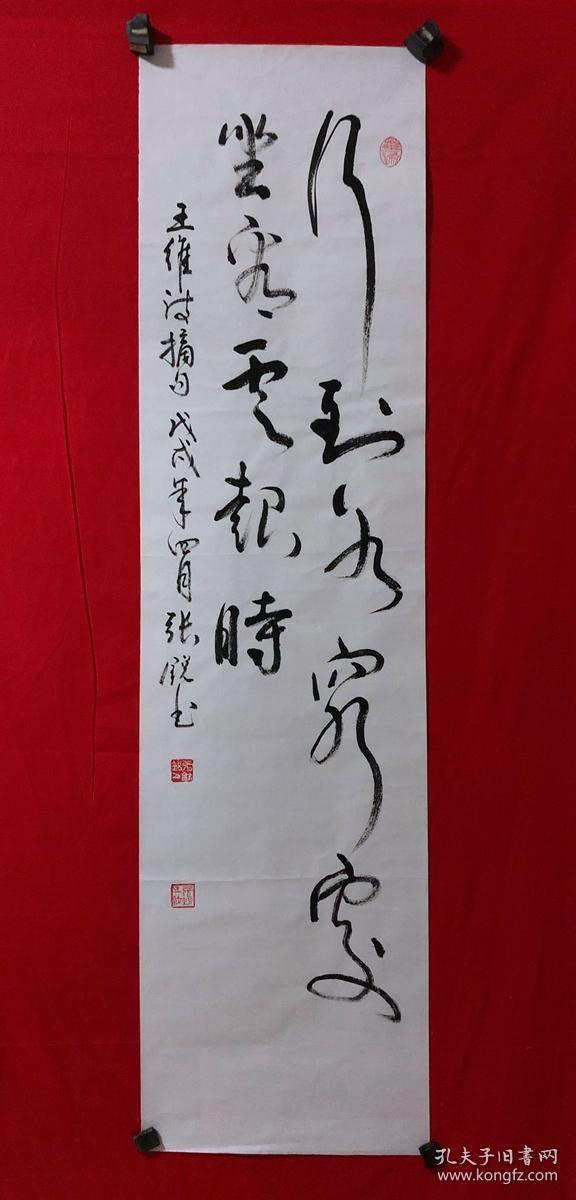 行到水窮處
坐看雲起時
王維詩摘句 戊戌年四月 張銳书
孔夫子旧書网
www.kongfz.com